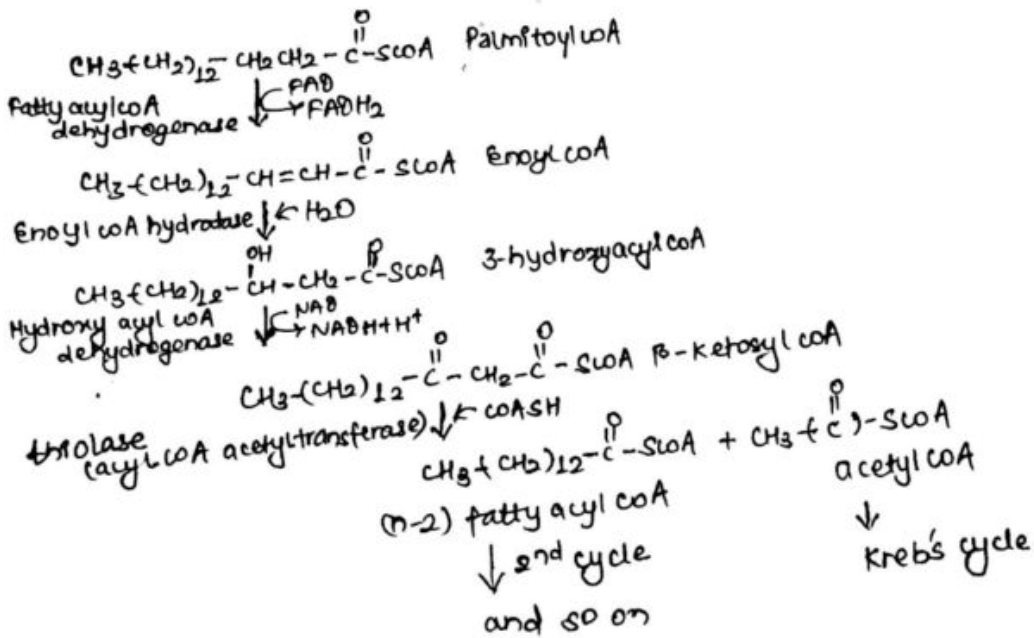 CH3-(CH2)12-CH2CH2-C(=O)-SCoA Palmitoyl coA
Fatty acyl coA dehydrogenase ↓ FAD → FADH2
CH3-(CH2)12-CH=CH-C(=O)-SCoA Enoyl coA
Enoyl coA hydratase ↓ ← H2O
CH3-(CH2)12-CH(OH)-CH2-C(=O)-SCoA 3-hydroxyacyl coA
Hydroxy acyl coA dehydrogenase ↓ NAD → NADH+H+
CH3-(CH2)12-C(=O)-CH2-C(=O)-SCoA β-ketosyl coA
thiolase (acyl coA acetyltransferase) ↓ ← COASH
CH3-(CH2)12-C(=O)-SCoA + CH3-(C(=O))-SCoA
(n-2) fatty acyl coA
acetyl coA
↓ 2nd cycle
↓
Kreb's cycle
and so on